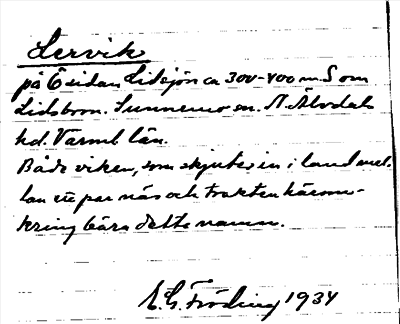 Lervik
på Ö sidan Lidsjön ca 300-400 m. S om
Lidsbron. Sunnemo sn. N. Älvdals
hd. Värml län.
Både viken, som skjuter in i land mel-
lan ett par näs och trakten härom-
kring bära detta namn.
E. G. Fröding 1934